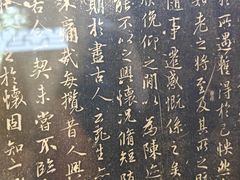 於所遇蹔得於己怏然
知老之將至及其所之
隨事遷感慨係之矣
欣俛仰之間以為陳
能不以之興懷況脩短
期於盡古人云死生
痛哉每攬昔人興
合一契未嘗不臨
之於懷固知一